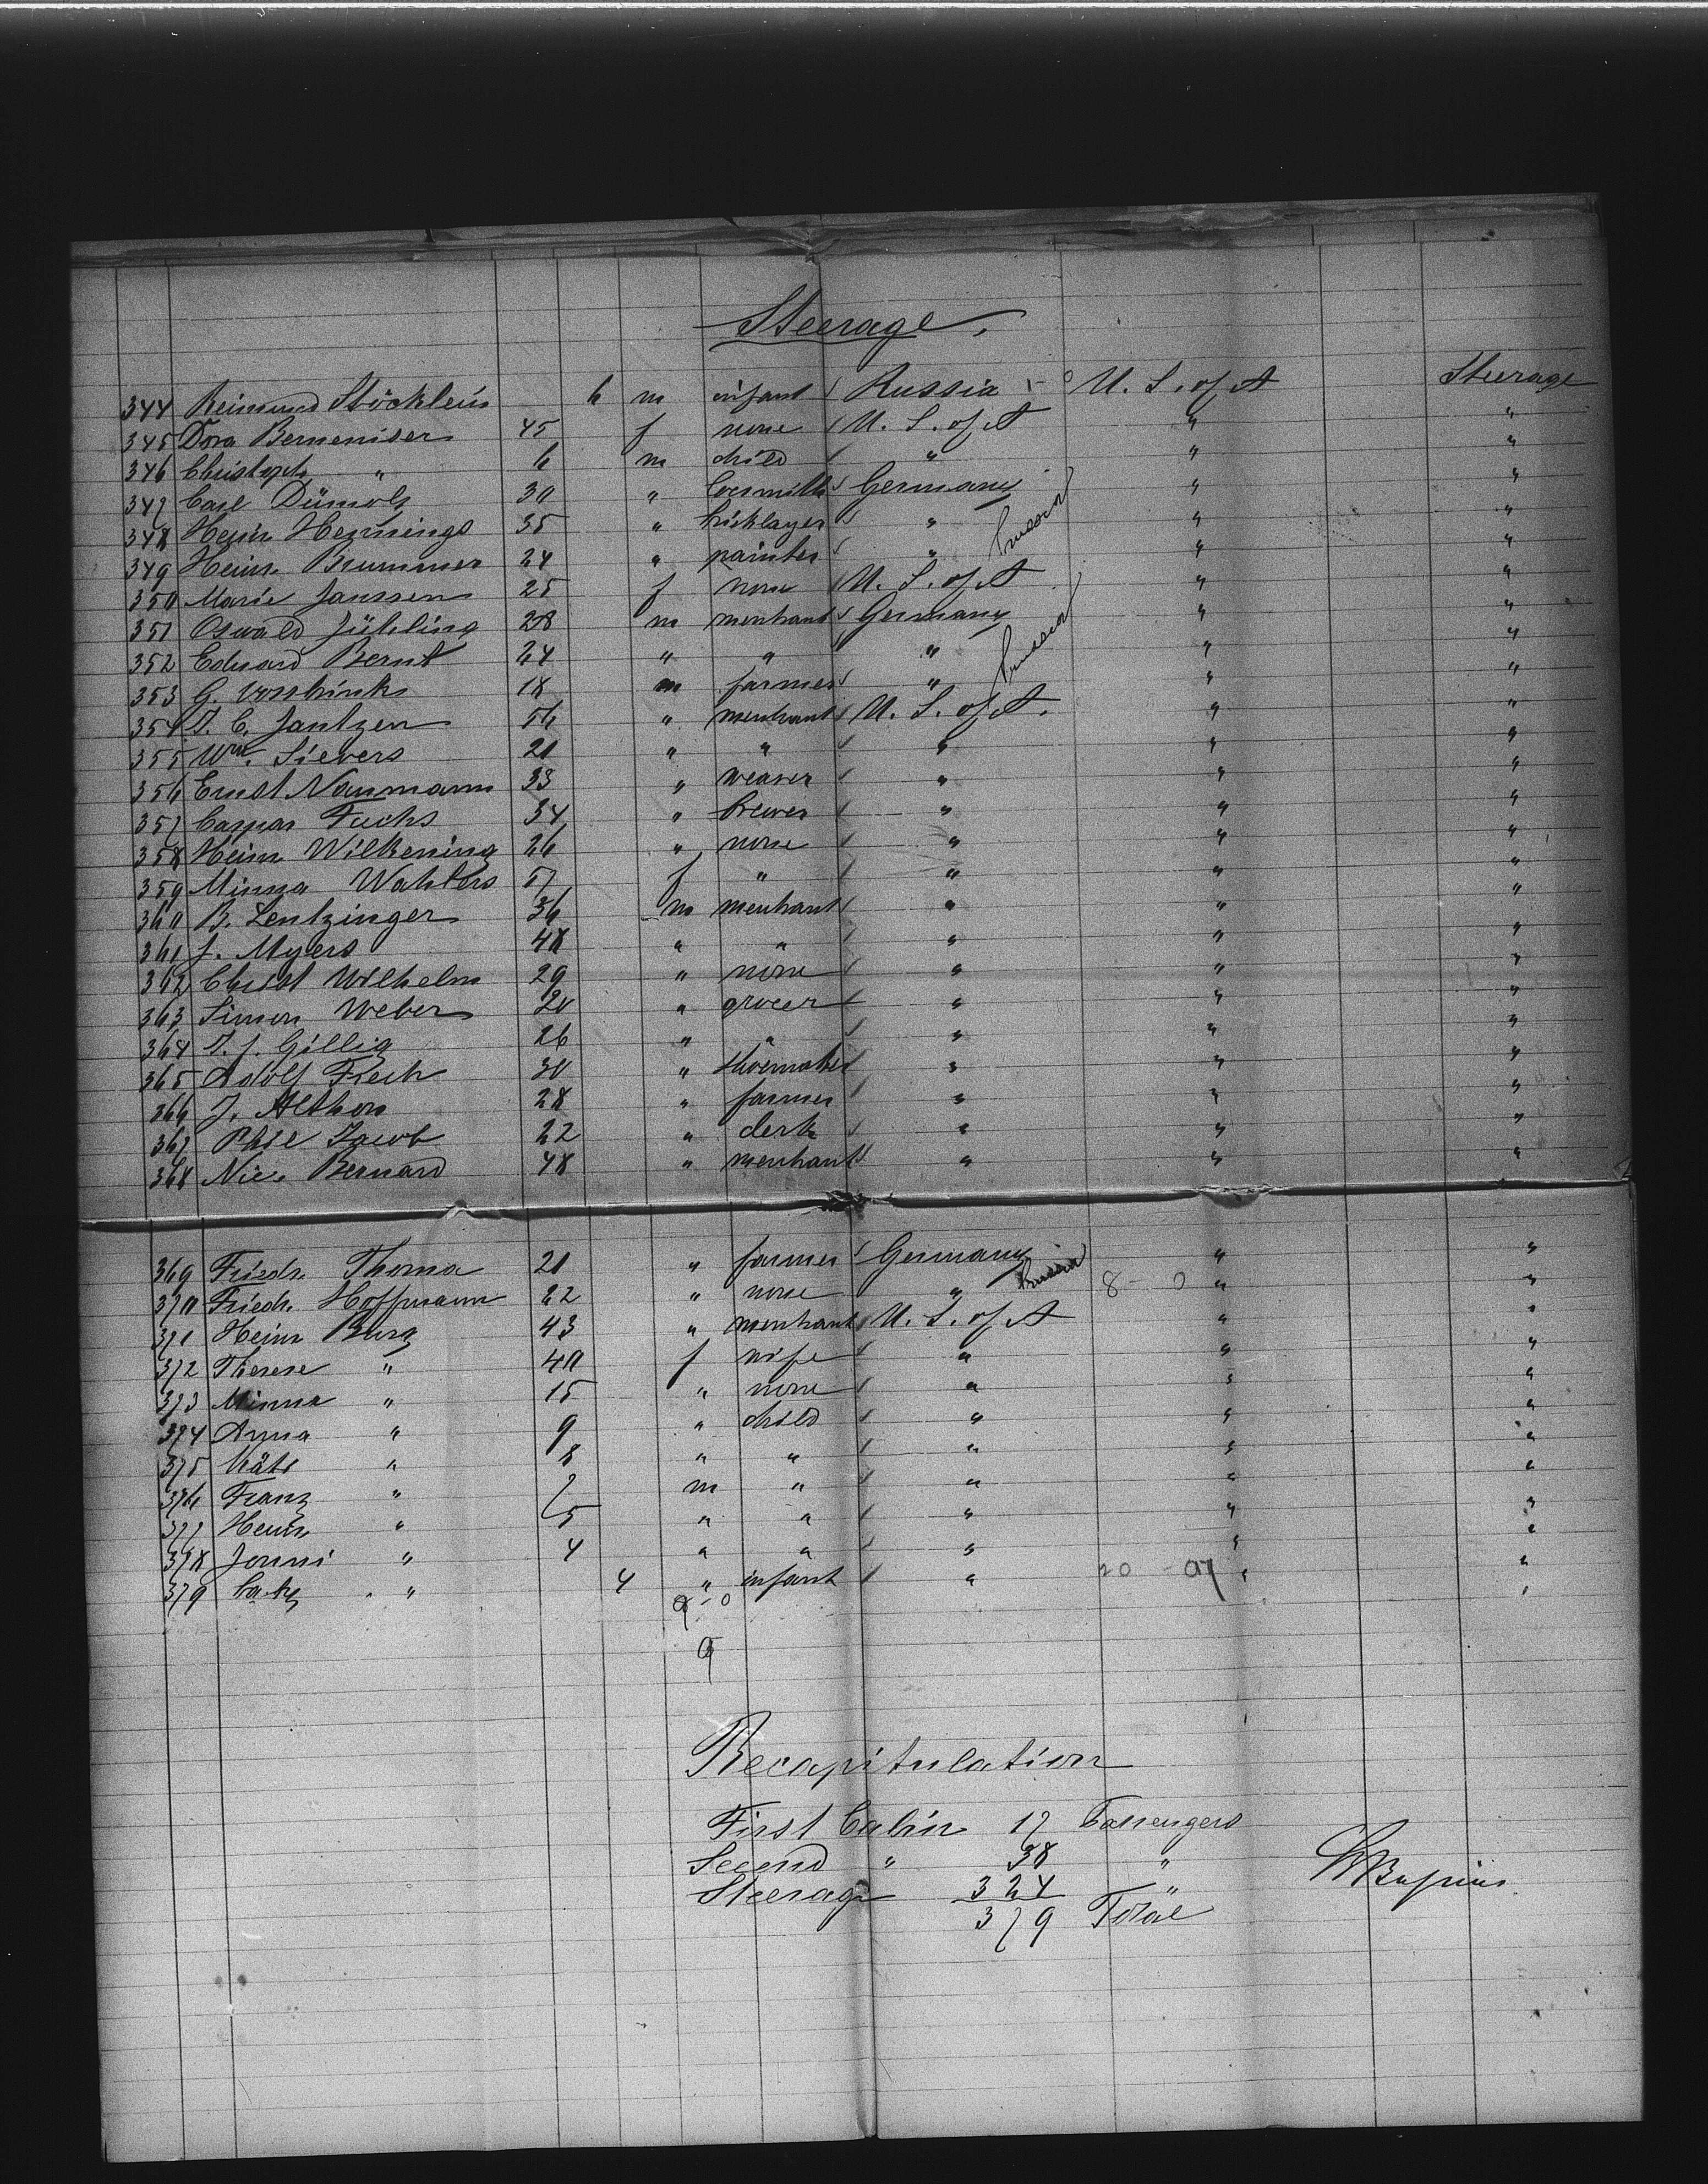 Steerage.
344 Reimund Stöcklein 6 m infant Russia U. S. of A Steerage
345 Dora Berneniser 45 f none U. S. of A " "
346 Christoph " 6 m child " " "
347 Carl Dümolz 30 " locsmith Germany " "
348 Heinr Hennings 35 " bricklayer " " "
349 Heinr. Brummer 24 " painter " Prussia " "
350 Marie Janssen 25 f none U. S. of A " "
351 Oswald Jühling 28 m merchant Germany " "
352 Eduard Bernt 24 " " " " "
353 G. Vosshink 18 m farmer " Prussia " "
354 J. C. Jantzen 56 " merchant U. S. of A. " "
355 Wm. Sievers 21 " " " " "
356 Ernst Naumann 33 " weaver " " "
357 Caspar Fuchs 34 " brewer " " "
358 Heinr Wilkening 26 " none " " "
359 Minna Wahlers 57 f " " " "
360 B. Lentzinger 36 m merchant " " "
361 J. Myers 48 " " " " "
362 Christ Wilhelm 29 " none " " "
363 Simon Weber 20 " grocer " " "
364 J. J. Gillig 26 " " " " "
365 Adolf Frech 30 " shoemaker " " "
366 J. Althon 28 " farmer " " "
367 Phil Jacob 22 " clerk " " "
368 Nic. Bernard 48 " merchant " " "
369 Friedr. Thoma 21 " farmer Germany " "
370 Friedr. Hoffmann 22 " none " Prussia 8 - 0 " "
371 Heinr Burg 43 " merchant U. S. of A " "
372 Therese " 40 f wife " " "
373 Minna " 15 " none " " "
374 Anna " 9 " child " " "
375 Käte " 8 " " " " "
376 Franz " 7 m " " " "
377 Heinr " 5 " " " " "
378 Jonni " 4 " " " " "
379 " 4 " infant " 20 - 07 " "
9 - 0
9
Recapitulation
First Cabin 17 Passengers
Second " 38 "
Steerage 324 "
379 Total